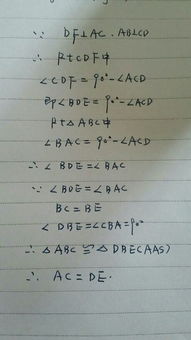 ∵ DF⊥AC . AB⊥CD
∴ Rt CDF中
∠CDF = 90°-∠ACD
即∠BDE = 90°-∠ACD
Rt△ABC中
∠BAC = 90°-∠ACD
∴ ∠BDE = ∠BAC
∵ ∠BDE = ∠BAC
BC = BE
∠DBE = ∠CBA = 90°
∴ △ABC ≌ △DBE(AAS)
∴ AC = DE.